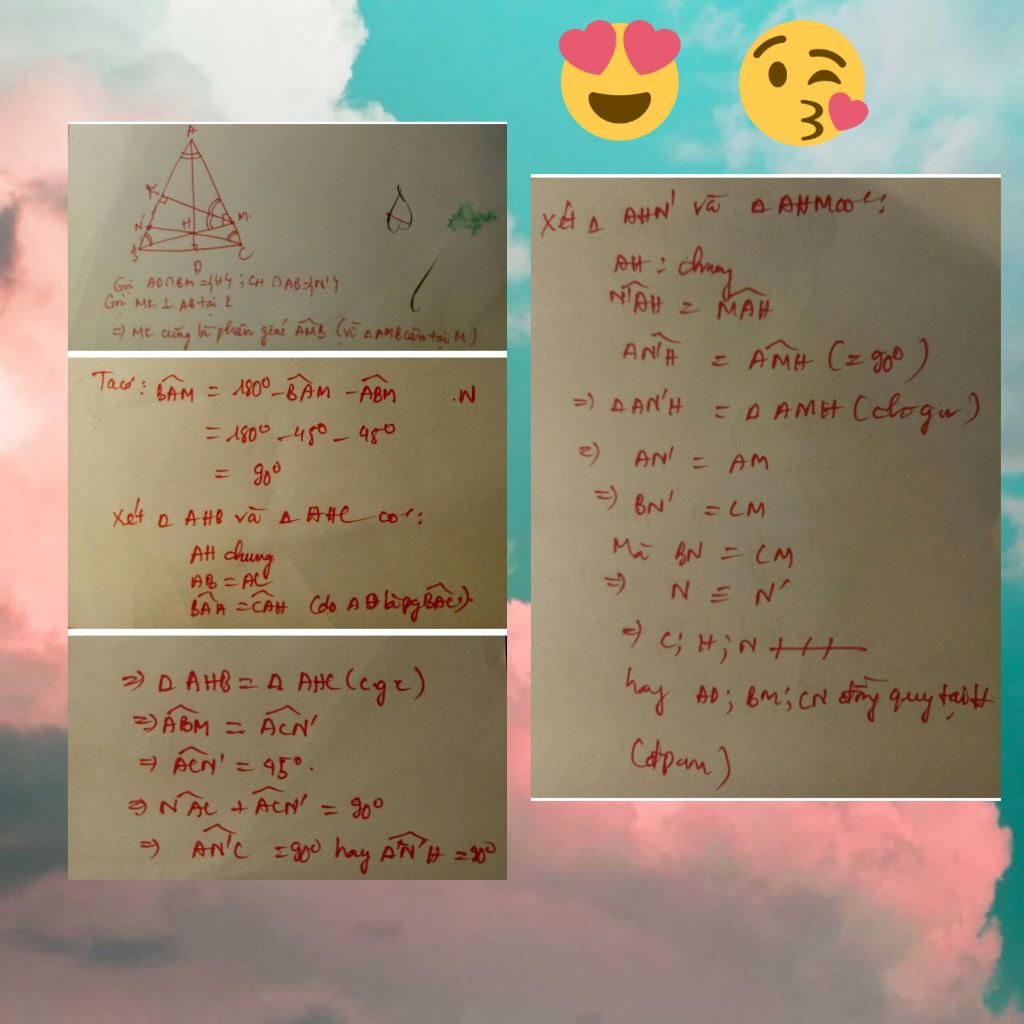 A
K
N
H
M
B
C
D
Gọi AD∩BM={H}; CH∩AB={N'}
Gọi MK ⊥ AB tại K
=> MK cũng là phân giác AMB (vì ΔAMB cân tại M)
Ta có: BAM = 180° - BAM - ABM .N
= 180° - 45° - 45°
= 90°
Xét Δ AHB và Δ AHC có:
AH chung
AB = AC
BAH = CAH (do AD là pg BAC)
=> Δ AHB = Δ AHC (c.g.c)
=> ABM = ACN'
=> ACN' = 45°.
=> N'AC + ACN' = 90°
=> AN'C = 90° hay AN'H = 90°
Xét Δ AHN' và Δ AHM có:
AH: chung
N'AH = MAH
AN'H = AMH (= 90°)
=> ΔAN'H = Δ AMH (ch-gn)
=> AN' = AM
=> BN' = CM
Mà BN = CM
=> N ≡ N'
=> C; H; N
hay AD; BM; CN đồng quy tại H
(đpcm)